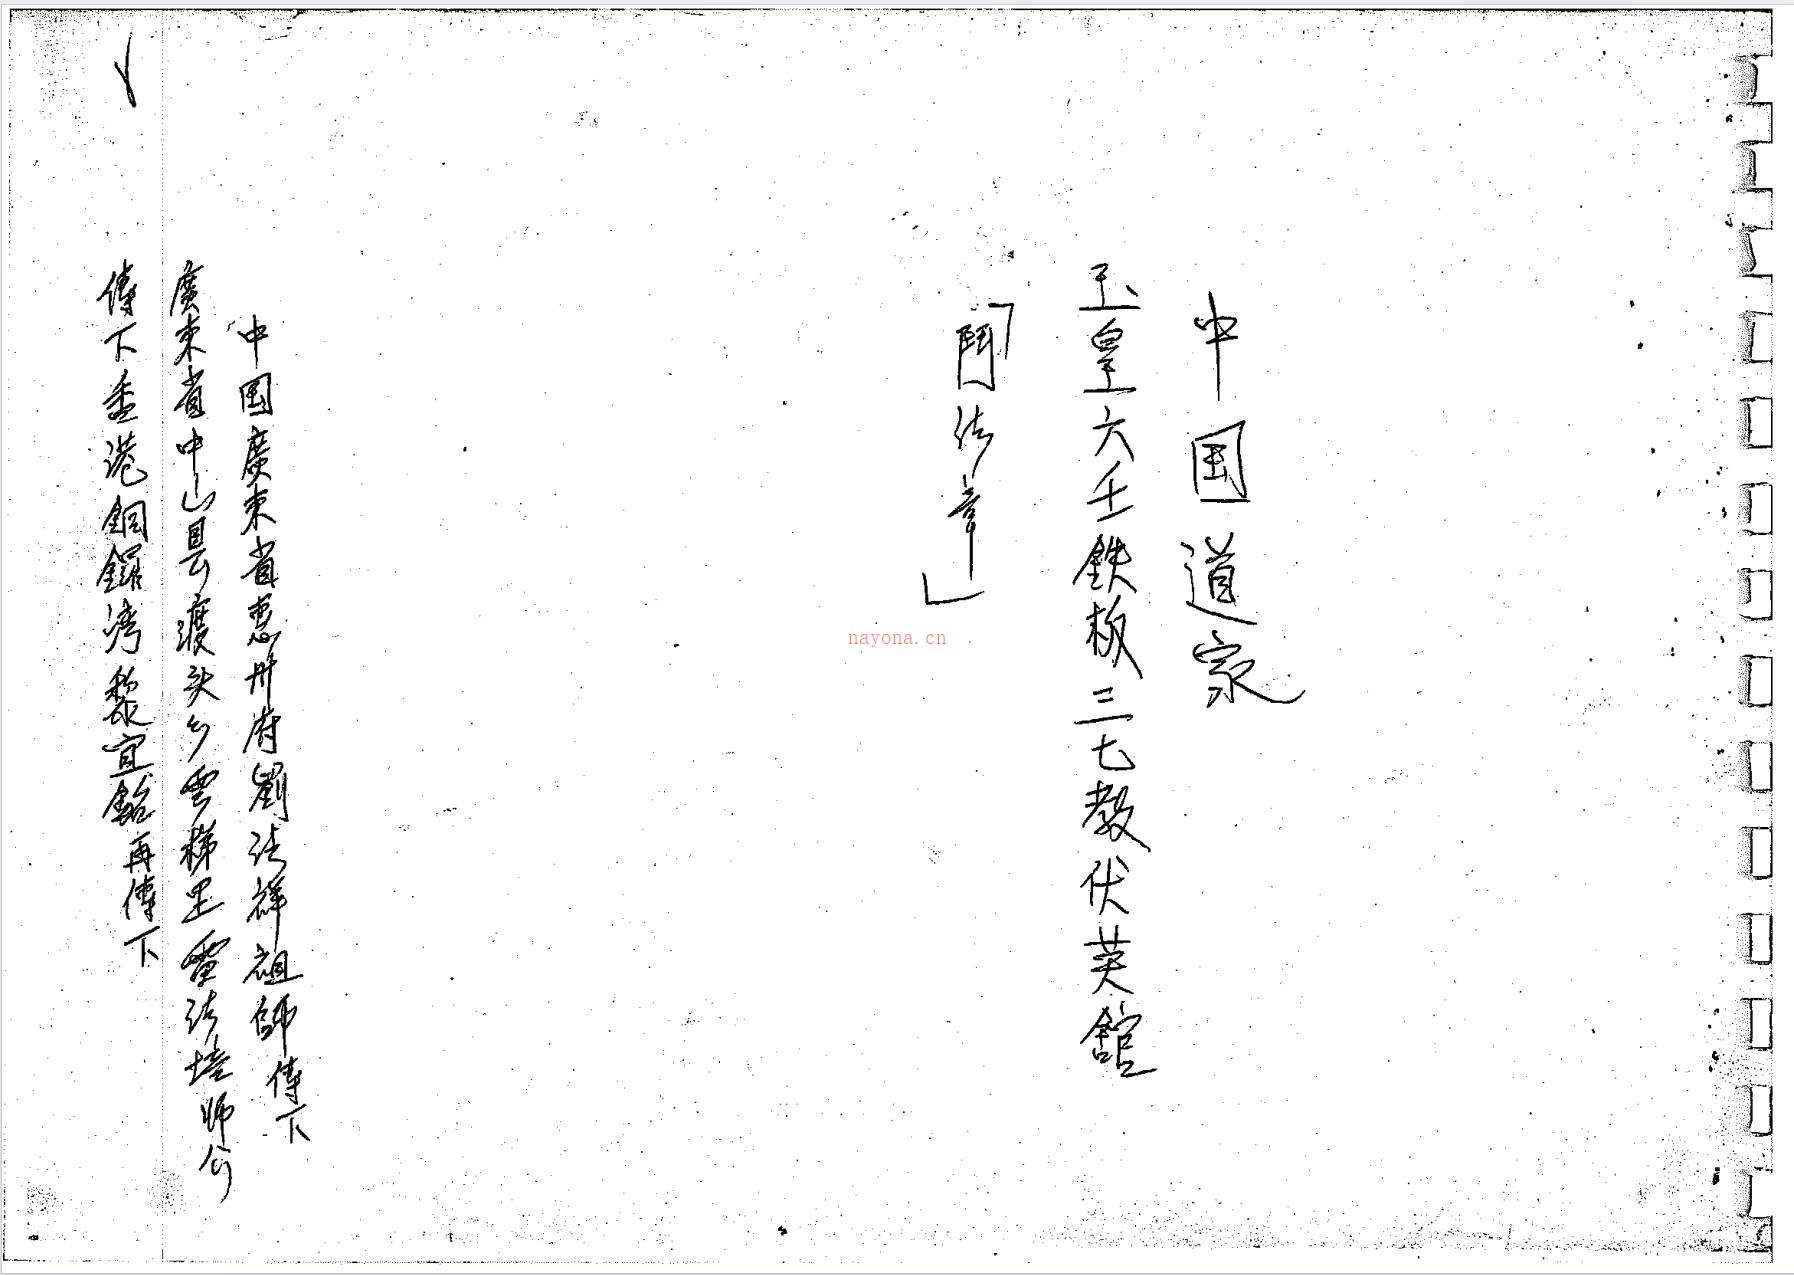 中国道家
玉皇六壬鉄板三七教伏英舘
「鬥法章」
中国廣東省惠州府劉法祥祖師傳下
廣東省中山县渡头乡雲梯里雷法培師公
傳下香港銅鑼湾黎宜鉛再傳下
nayona.cn